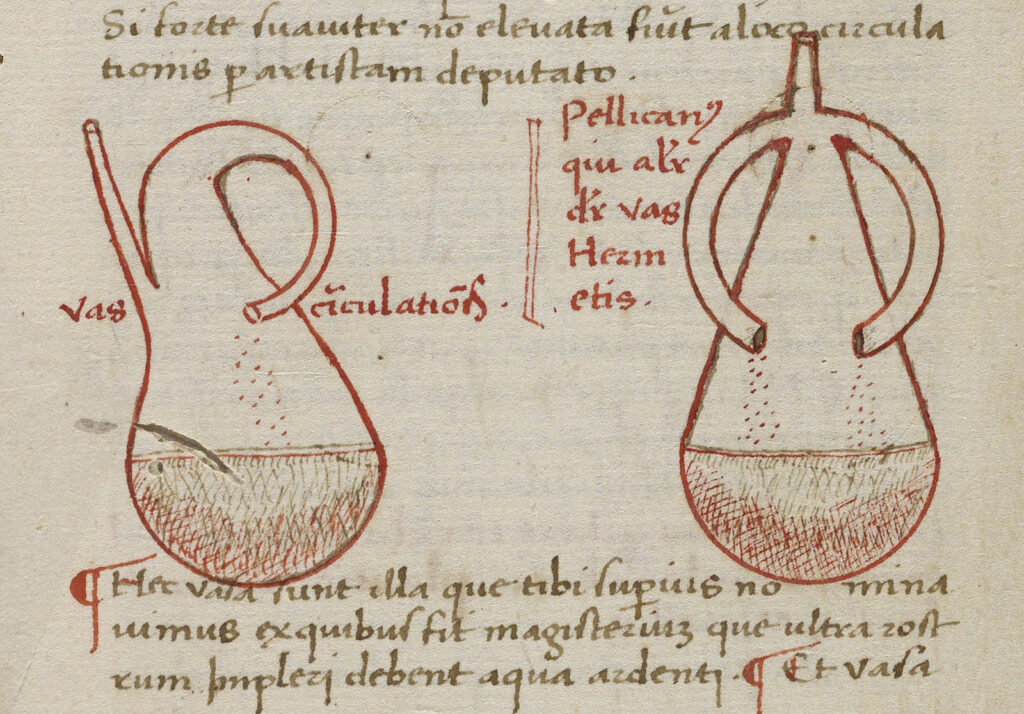 Si forte suauiter nō eleuata siūt a loco circula
tionis p artistam deputato .
vas circulatiōis .
Pellicanꝰ
qui alr
dr vas
Herm
etis .
¶ Hec vasa sunt illa que tibi superius no mina
uimus ex quibus fit magisterium que ultra rost
rum impleri debent aqua ardenti . ¶ Et vasa